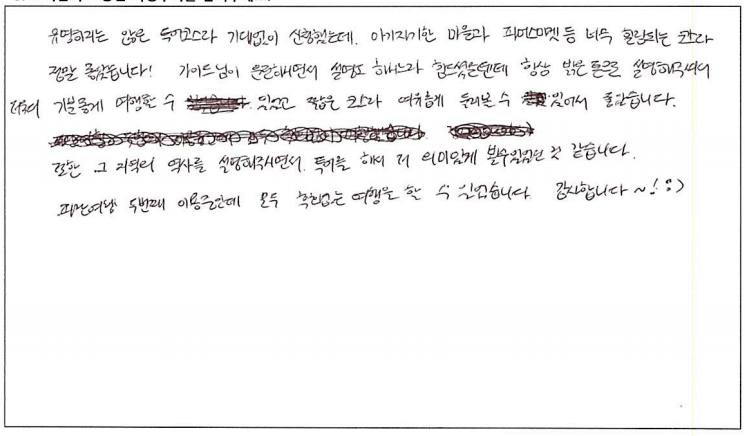 유명하지는 않은 투어코스라 기대없이 신청했는데, 아기자기한 마을과 피버스마켓 등 너무 힐링되는 코스라
정말 좋았습니다! 가이드님이 운전하시면서 설명도 하시느라 힘드셨을텐데 항상 밝은 톤으로 설명해주셔서
저희도 기분좋게 여행할 수 있었고 짧은 코스라 여유롭게 둘러볼 수 있어서 좋았습니다.
또한 그 지역의 역사를 설명해주시면서, 투어를 해서 더 의미있게 볼수있었던 것 같습니다.
두번째 이용중인데 모두 후회없는 여행을 할 수 있었습니다. 감사합니다~! :)